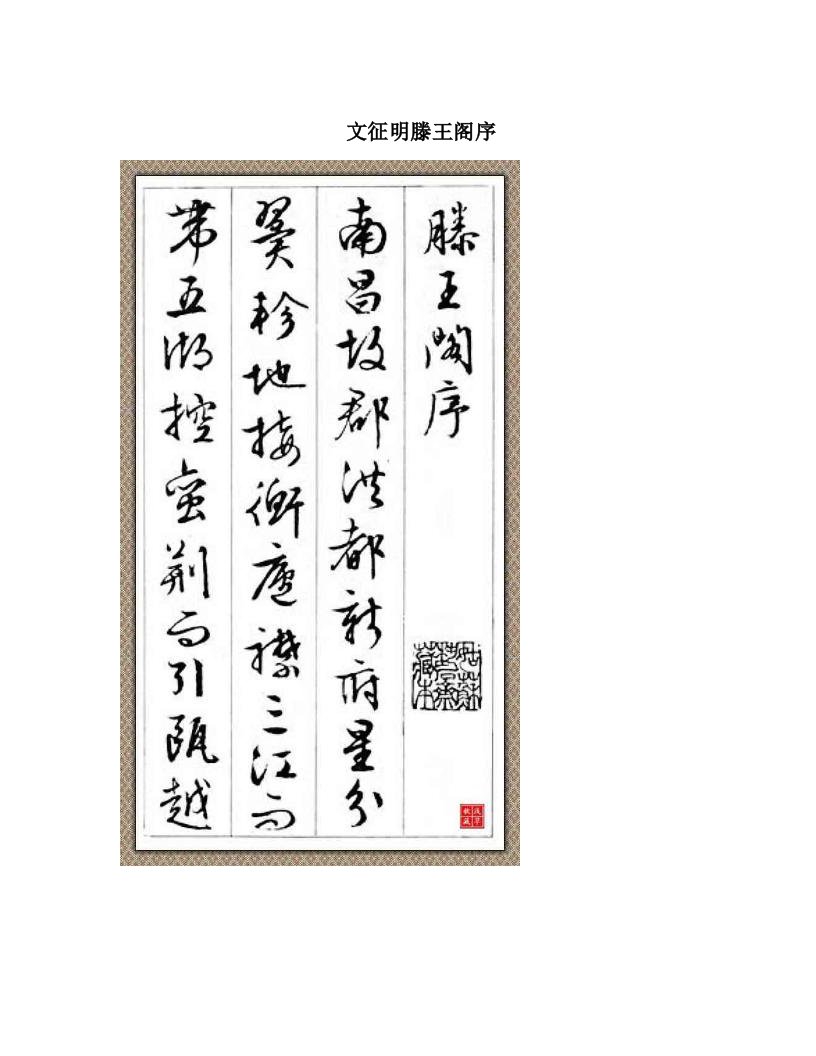 文征明滕王阁序
滕王閣序
南昌故郡洪都新府星分
翼軫地接衡廬襟三江而
帶五湖控蛮荆而引甌越